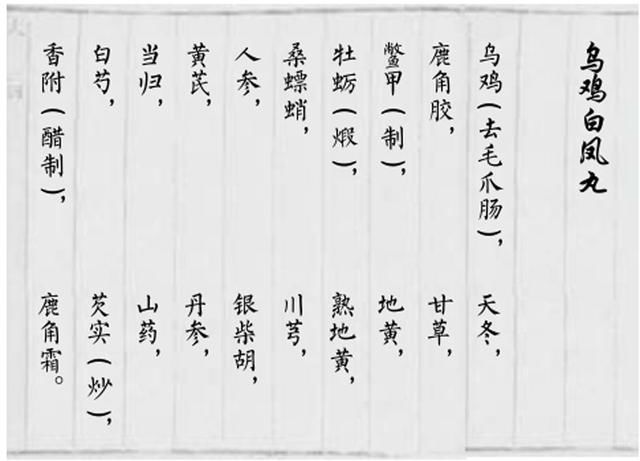 乌鸡白凤丸
乌鸡(去毛爪肠),
鹿角胶,
鳖甲(制),
牡蛎(煅),
桑螵蛸,
人参,
黄芪,
当归,
白芍,
香附(醋制),
天冬,
甘草,
地黄,
熟地黄,
川芎,
银柴胡,
丹参,
山药,
芡实(炒),
鹿角霜。